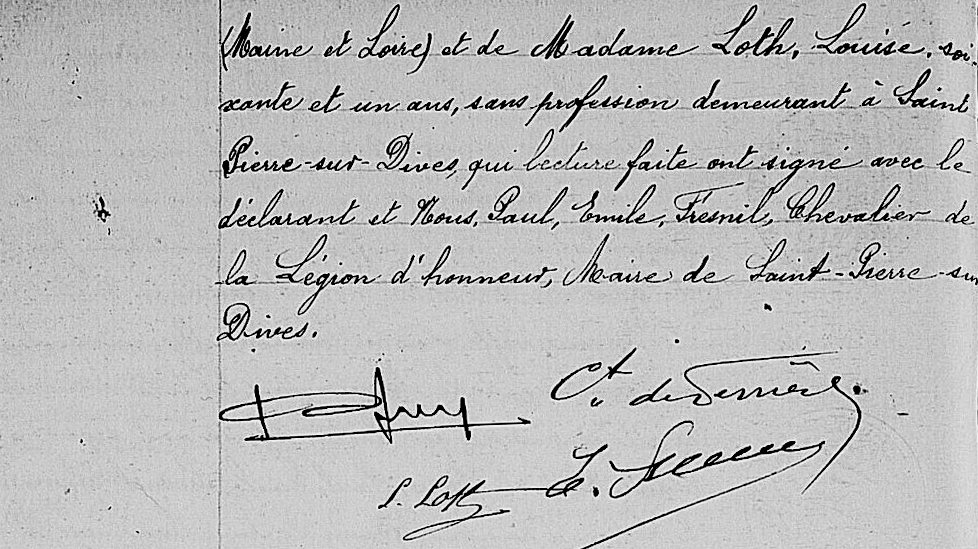 (Maine et Loire) et de Madame Loth, Louise, soi-
xante et un ans, sans profession demeurant à Saint
Pierre-sur-Dives, qui lecture faite ont signé avec le
déclarant et Nous, Paul, Emile, Fresnil, Chevalier de
la Légion d'honneur, Maire de Saint-Pierre-sur
Dives.
L. Loth